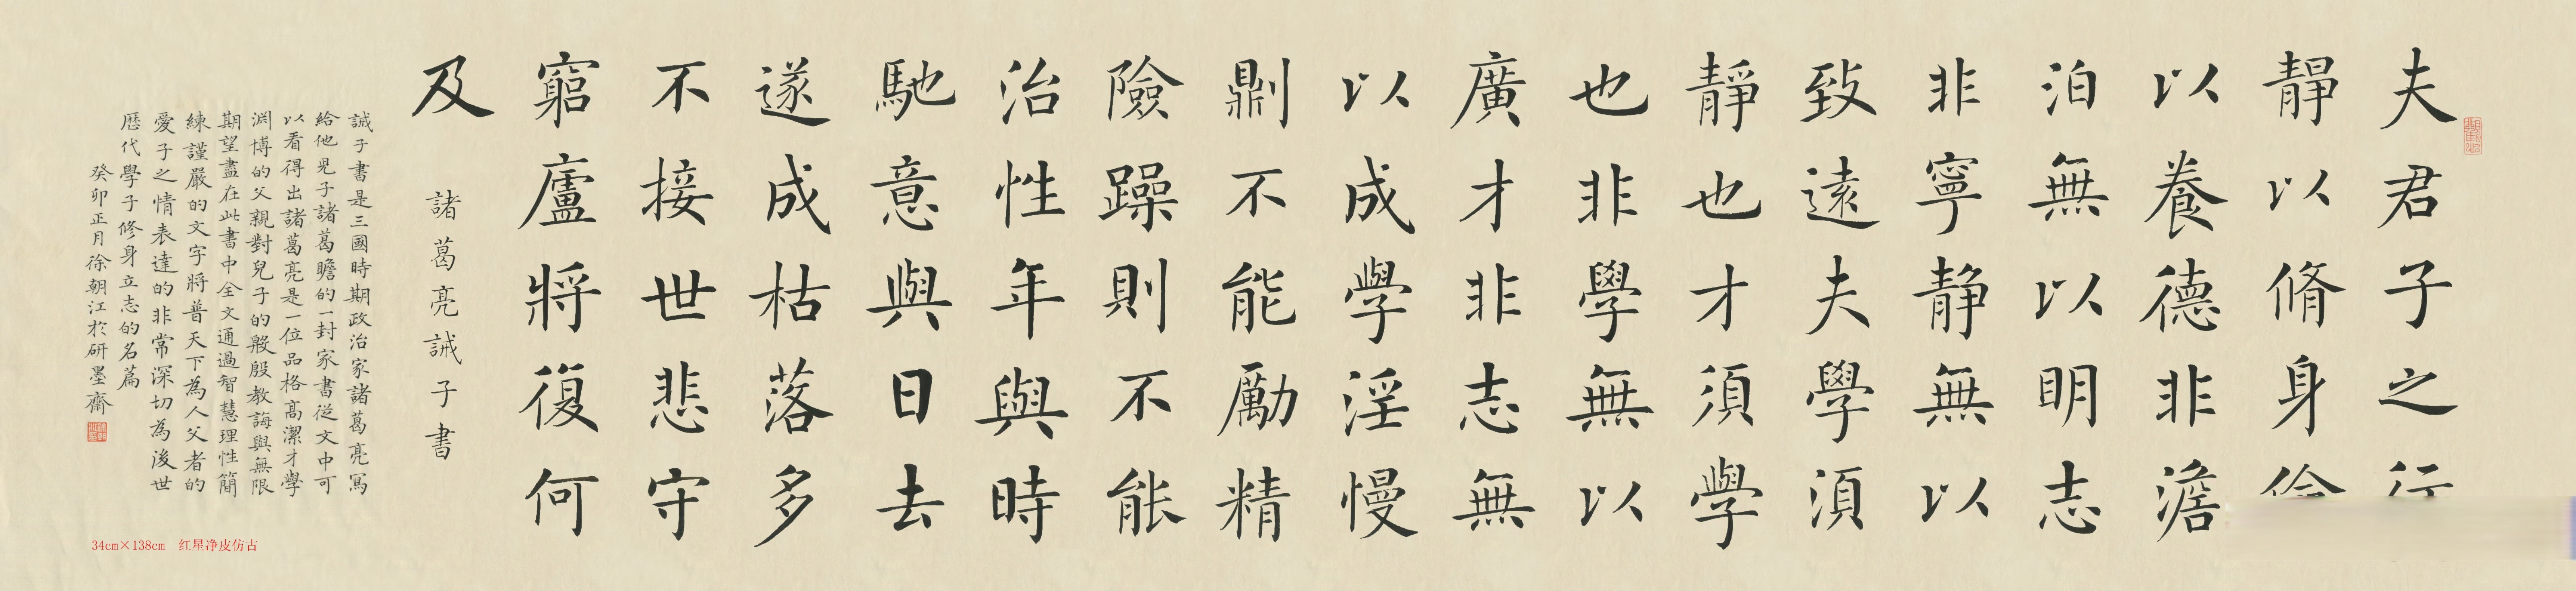 夫君子之行
靜以脩身儉
以養德非澹
泊無以明志
非寧静無以
致遠夫學須
靜也才須學
也非學無以
廣才非志無
以成學淫慢
則不能勵精
險躁則不能
治性年與時
馳意與日去
遂成枯落多
不接世悲守
窮廬將復何
及
諸葛亮誡子書
誡子書是三國時期政治家諸葛亮寫
給他兒子諸葛瞻的一封家書從文中可
以看得出諸葛亮是一位品格高潔才學
渊博的父親對兒子的殷殷教誨與無限
期望盡在此書中全文通過智慧理性簡
練謹嚴的文字將普天下為人父者的
愛子之情表達的非常深切為後世
歷代學子修身立志的名篇
癸卯正月徐朝江於研墨齋
34cm×138cm 红星净皮仿古